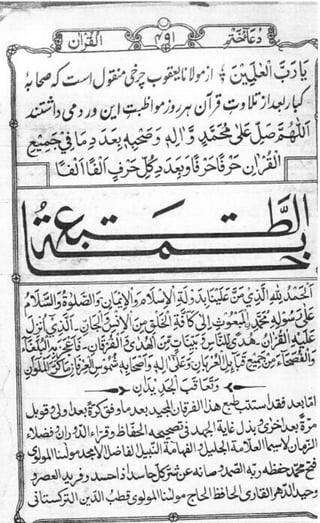 دعائے ختم ۴۹۱ القرآن
يَا رَبَّ الْعٰلَمِيْنَ ؞ از مولانا یعقوب چرخی منقول است که صحابهٔ
کبار بعد از تلاوتِ قرآن هر روز مواظبتِ این ورد می داشتند
اَللّٰهُمَّ صَلِّ عَلٰى مُحَمَّدٍ وَّاٰلِهٖ وَصَحْبِهٖ بِعَدَدِ مَا فِيْ جَمِيْعِ
الْقُرْاٰنِ حَرْفًا حَرْفًا وَبِعَدَدِ كُلِّ حَرْفٍ اَلْفًا اَلْفًا
خاتمة الطبعة
اَلْحَمْدُ لِلّٰهِ الَّذِيْ مَنَّ عَلَيْنَا بِدَوْلَةِ الْاِسْلَامِ وَالْاِيْمَانِ وَالصَّلٰوةُ وَالسَّلَامُ
عَلٰى رَسُوْلِهٖ مُحَمَّدٍ الْمَبْعُوْثِ اِلٰى كَافَّةِ الْخَلْقِ مِنَ الْاِنْسِ وَالْجَانِّ ـ اَلَّذِيْ اُنْزِلَ
عَلَيْهِ الْقُرْاٰنُ هُدًى لِّلنَّاسِ وَبَيِّنَاتٍ مِّنَ الْهُدٰى وَالْفُرْقَانِ ـ الْبُلَغَاءِ
وَالْفُصَحَاءِ مِنْ جَمِيْعِ قَبَائِلِ الْعُرْبَانِ وَعَلٰى اٰلِهٖ وَاَصْحَابِهٖ شُمُوْسِ الْعِرْفَانِ مَا كَرَّ الْمَلَوَانِ
وَتَعَاقَبَ الْجَدِيْدَانِ
اما بعد فقد استتب طبع هذا القرآن المجید بعد ما وفق کرة بعد اولی و قوبل
مرة بعد اخری ببذل غایة الجهد فی تصحیحه الحفاظ و قراء الدوران و فضلاء
الزمان لاسیما العلامة الجلیل و الفهامة النبیل الفاضل الامجد مولنا المولوی
فتح محمد حفظه ربه الصمد و صانه عن شر کل حاسد اذا حسد و فرید العصر و
وحید الدهر القاری الحافظ الحاج مولنا المولوی قطب الدین الترکستانی